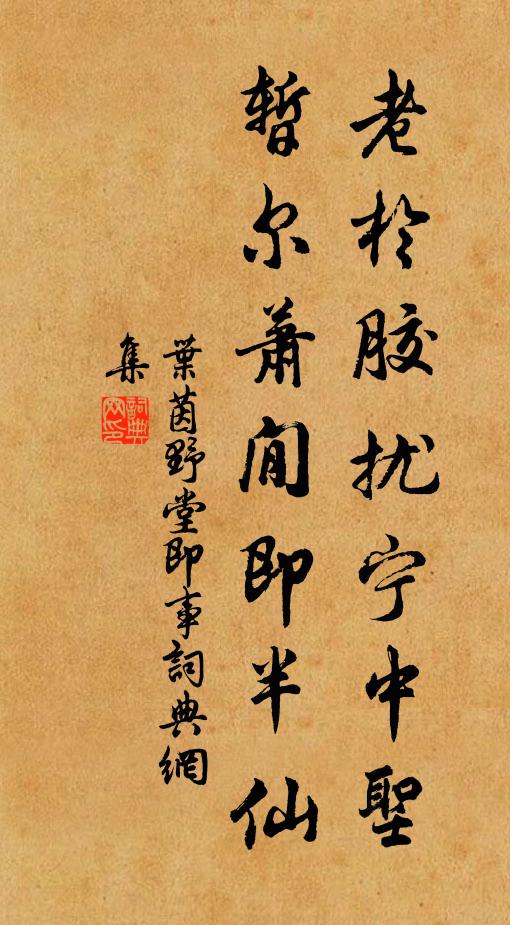 老於胶扰宁中聖
暫尔萧闲即半仙
葉茵野堂即事詞典網
集
詞典
网印